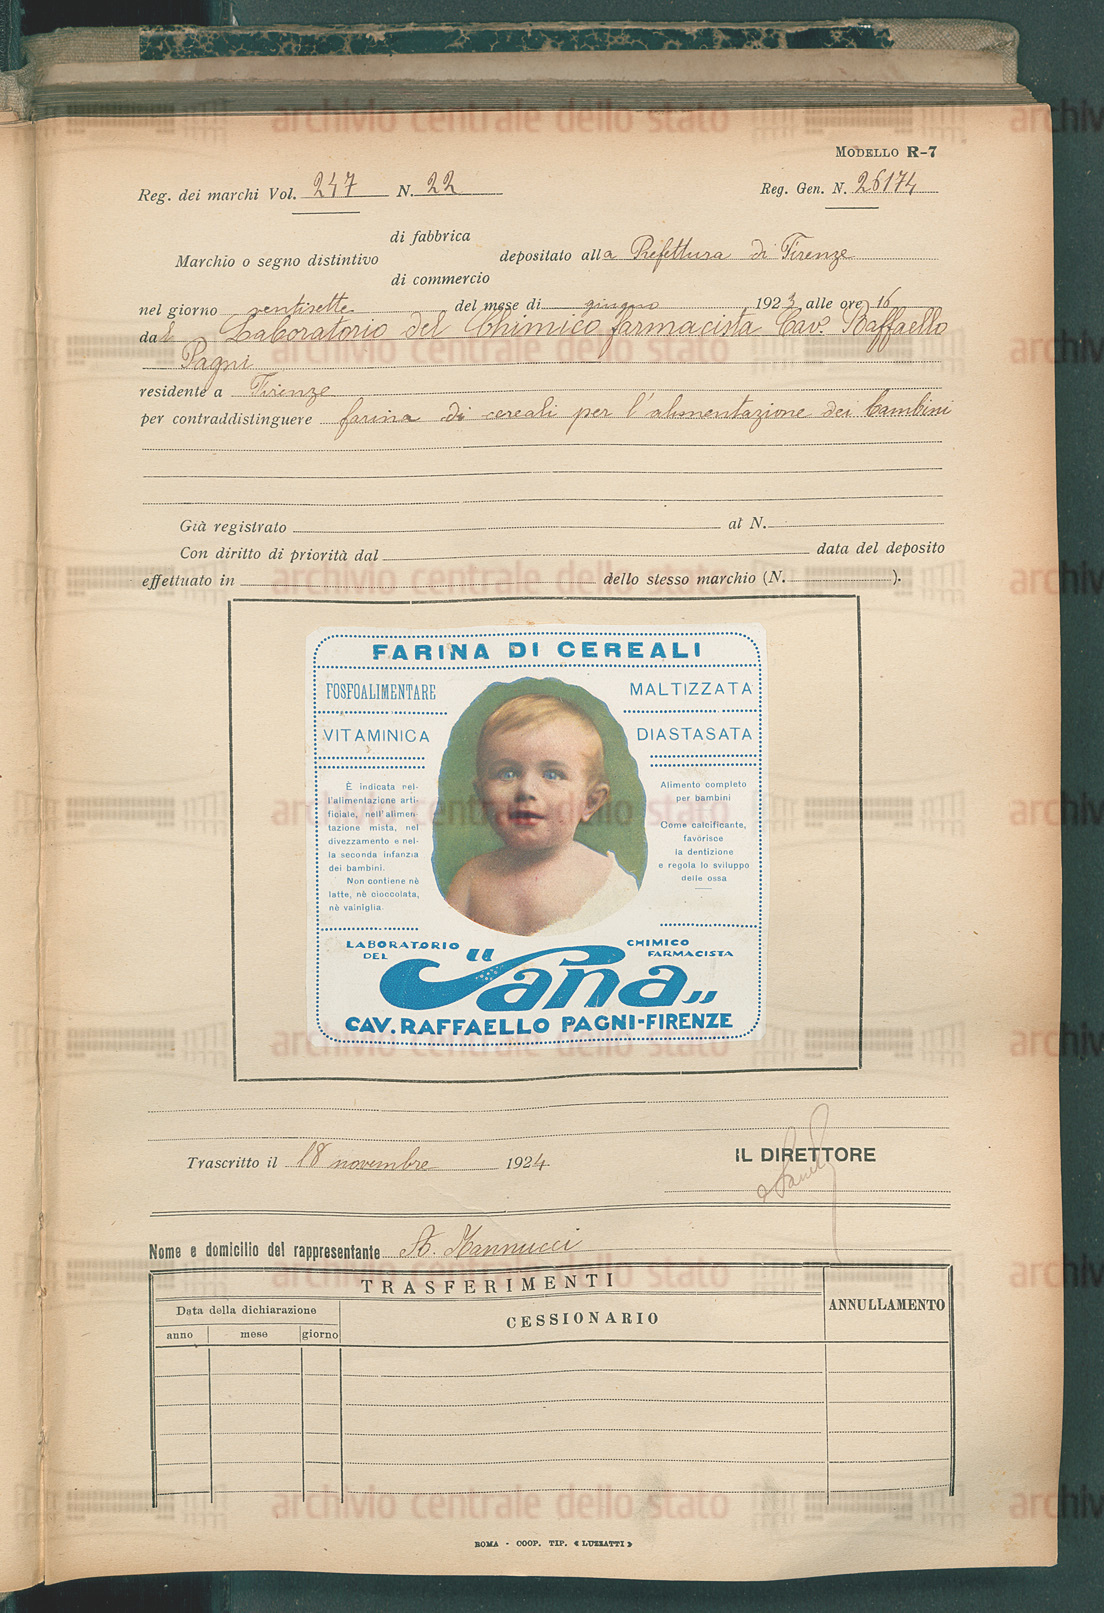 MODELLO R-7
Reg. dei marchi Vol. 247 N. 22
Reg. Gen. N. 26174
di fabbrica
Marchio o segno distintivo depositato alla Prefettura di Firenze
di commercio
nel giorno ventisette del mese di giugno 1923 alle ore 16
dal Laboratorio del Chimico farmacista Cav. Raffaello
Pagni
residente a Firenze
per contraddistinguere farina di cereali per l'alimentazione dei bambini
Già registrato al N.
Con diritto di priorità dal data del deposito
effettuato in dello stesso marchio (N. ).
FARINA DI CEREALI
FOSFOALIMENTARE
MALTIZZATA
VITAMINICA
DIASTASATA
È indicata nel-
l'alimentazione arti-
ficiale, nell'alimen-
tazione mista, nel
divezzamento e nel-
la seconda infanzia
dei bambini.
Non contiene nè
latte, nè cioccolata,
nè vainiglia.
Alimento completo
per bambini
Come calcificante,
favorisce
la dentizione
e regola lo sviluppo
delle ossa
LABORATORIO
DEL
CHIMICO
FARMACISTA
"Pana„
CAV. RAFFAELLO PAGNI-FIRENZE
Trascritto il 18 novembre 1924
IL DIRETTORE
Nome e domicilio del rappresentante A. Mannucci
TRASFERIMENTI
Data della dichiarazione
CESSIONARIO
ANNULLAMENTO
anno mese giorno
ROMA - COOP. TIP. « LUZZATTI »
archivio centrale dello stato